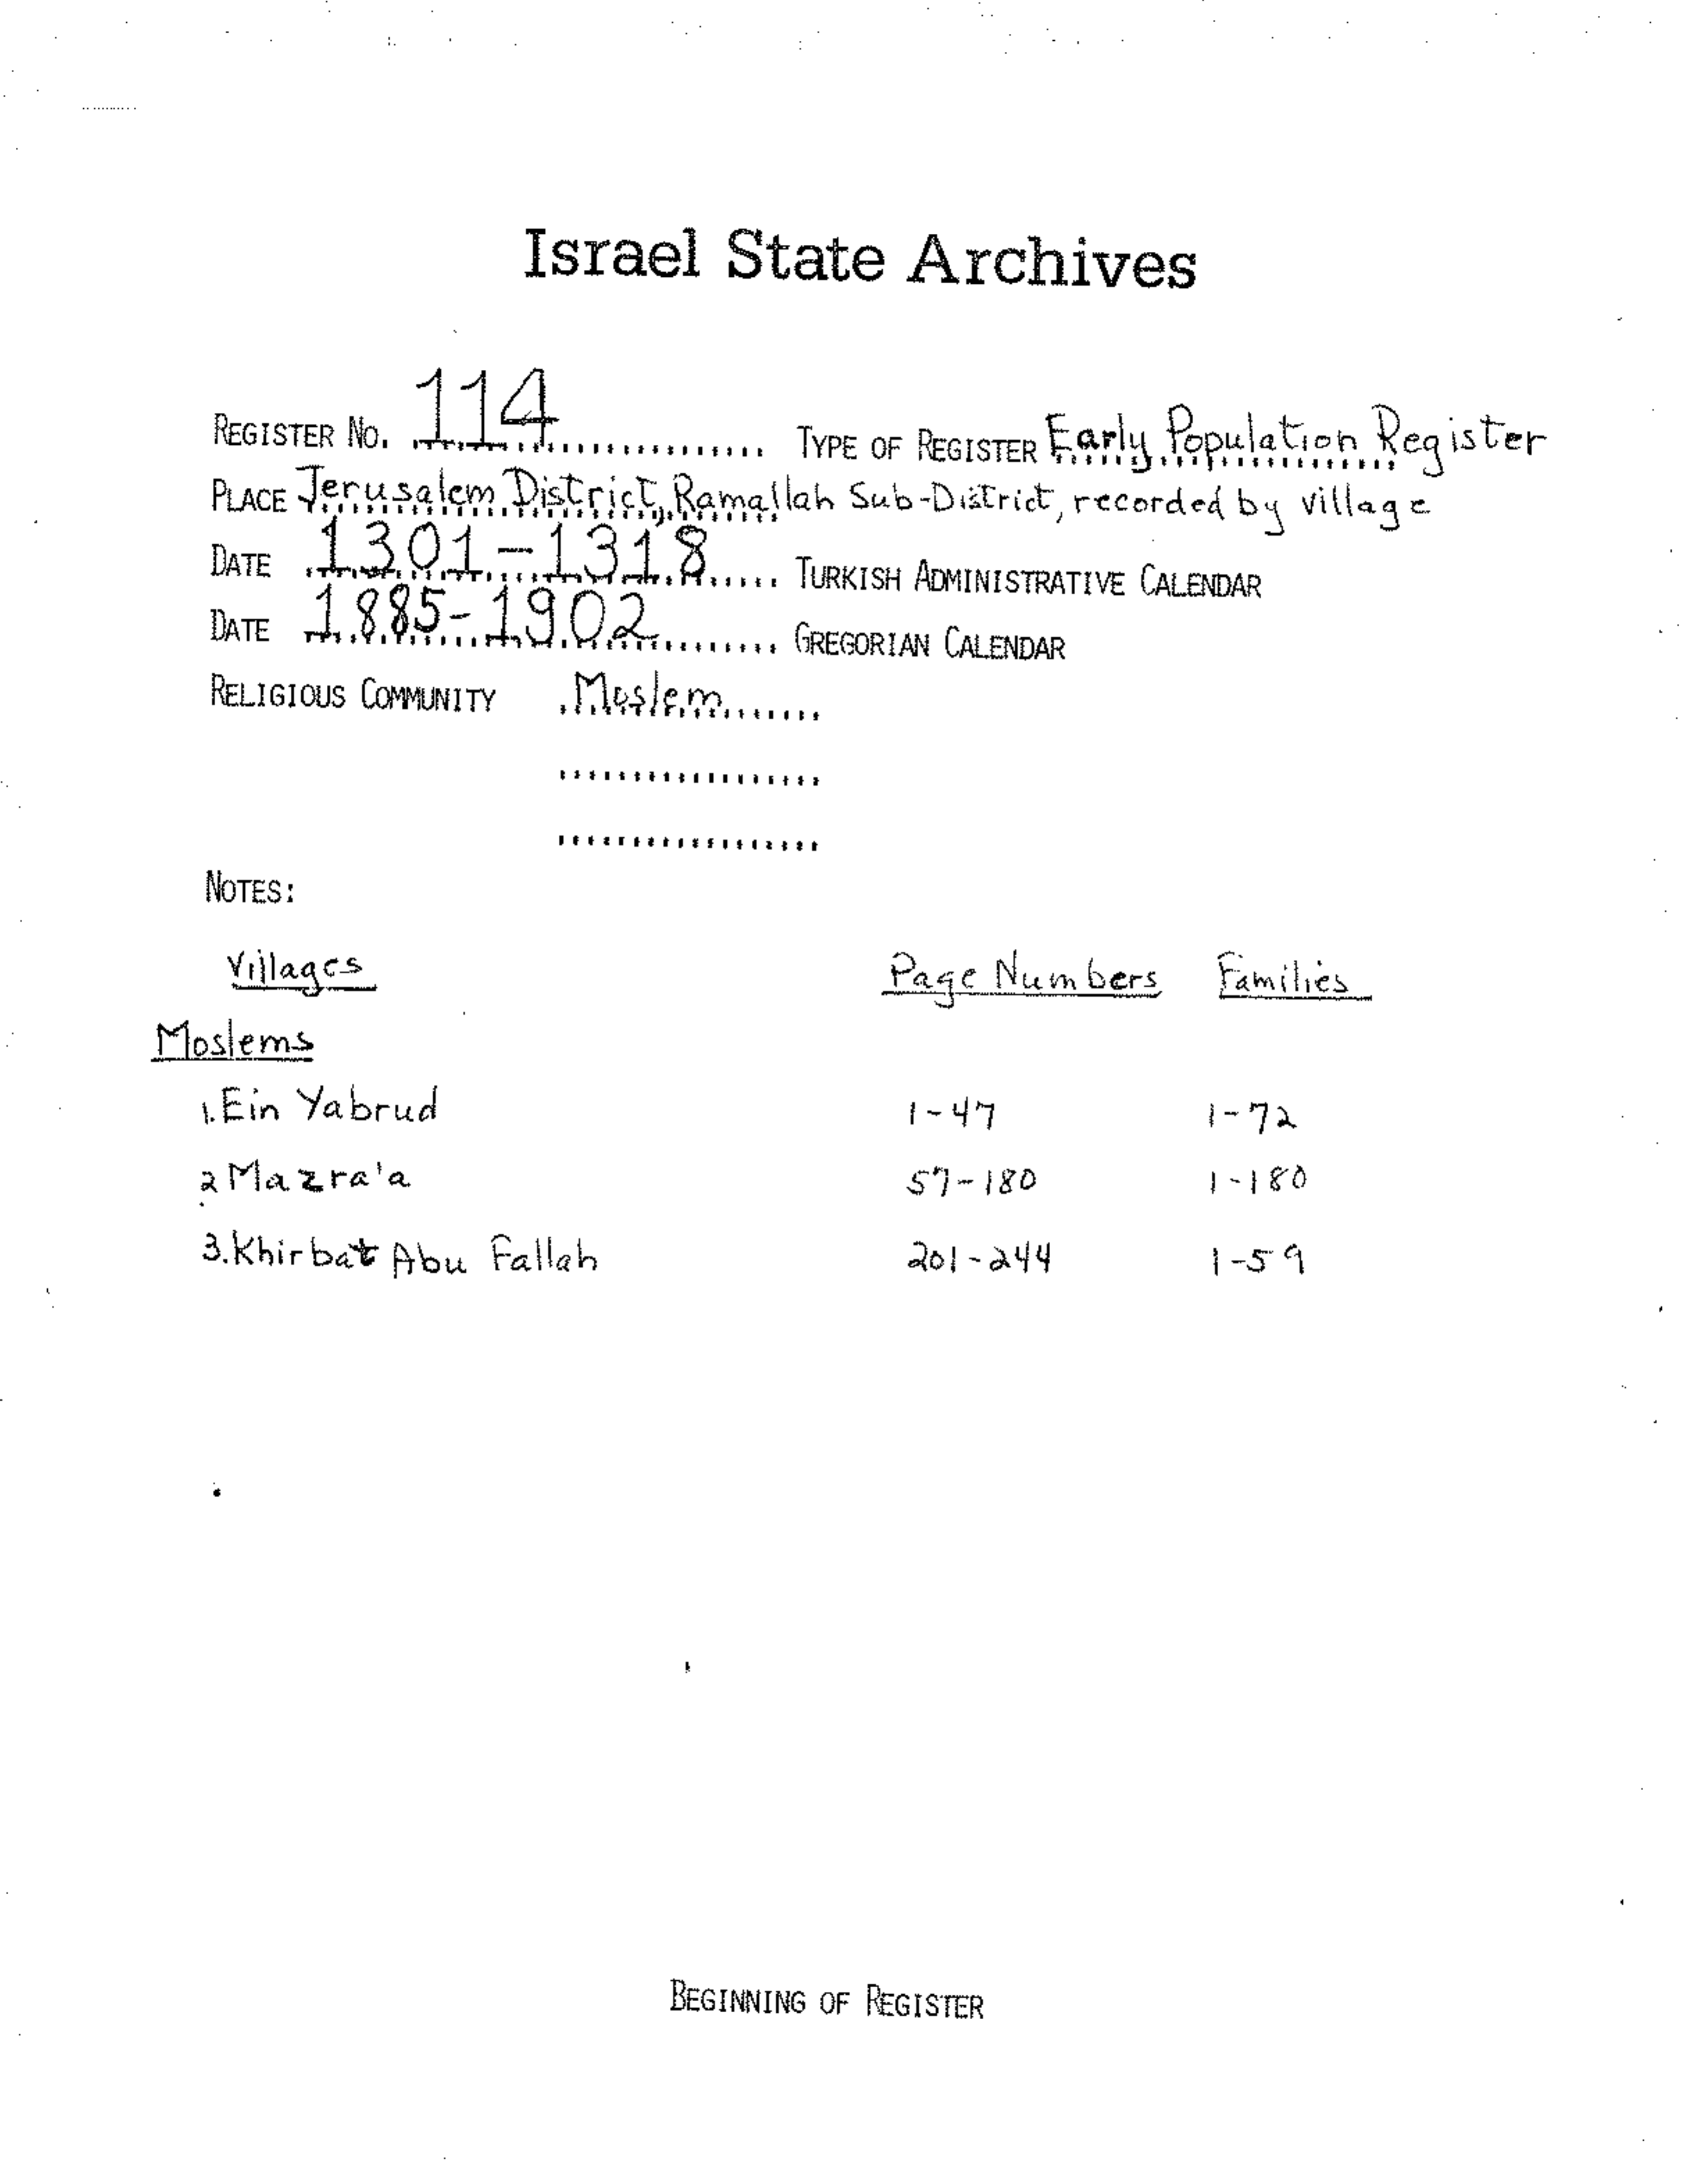 Israel State Archives
REGISTER NO. 114 TYPE OF REGISTER Early Population Register
PLACE Jerusalem District, Ramallah Sub-District, recorded by village
DATE 1301-1318 TURKISH ADMINISTRATIVE CALENDAR
DATE 1885-1902 GREGORIAN CALENDAR
RELIGIOUS COMMUNITY Moslem
NOTES:
Villages Page Numbers Families
Moslems
1. Ein Yabrud 1-47 1-72
2. Mazra'a 57-180 1-180
3. Khirbat Abu Fallah 201-244 1-59
BEGINNING OF REGISTER